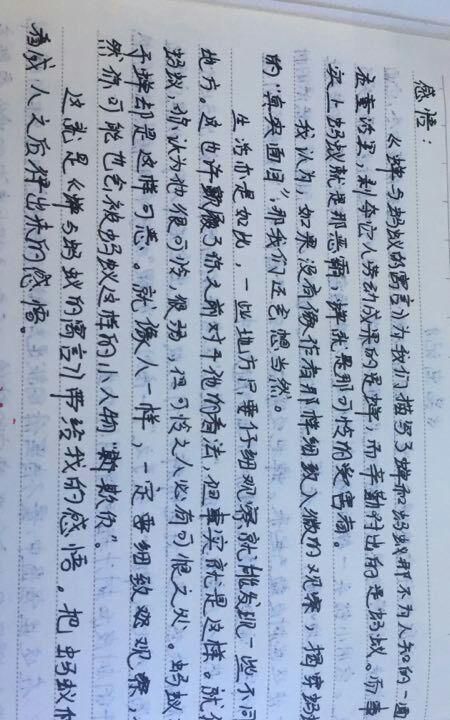 感悟：
《蝉与蚂蚁的寓言》为我们描写了蝉和蚂蚁那不为人知的一面
在童话里，剥夺他人劳动成果的是蝉，而辛勤付出的是蚂蚁。而事
实上蚂蚁就是那恶霸，蝉就是那可怜的受害
我认为，如果没有像作者那样细致入微的观察，揭穿蚂
的“真实面目”，那我们还会想当然。
生活亦是如此，一些地方只要仔细观察就能发现一些不同
地方。这也许颠覆了你之前对于他的看法，但事实就是这样。就
蚂蚁，你认为他很可怜，很弱，但可怜之人必有可恨之处。蚂蚁
于蝉却是这样可恶。就像人一样，一定要细致观察，
然你可能也会被蚂蚁这样的小人物“欺负”。
这就是《蝉与蚂蚁的寓言》带给我的感悟。把蚂蚁
看成人之后得出来的感悟。